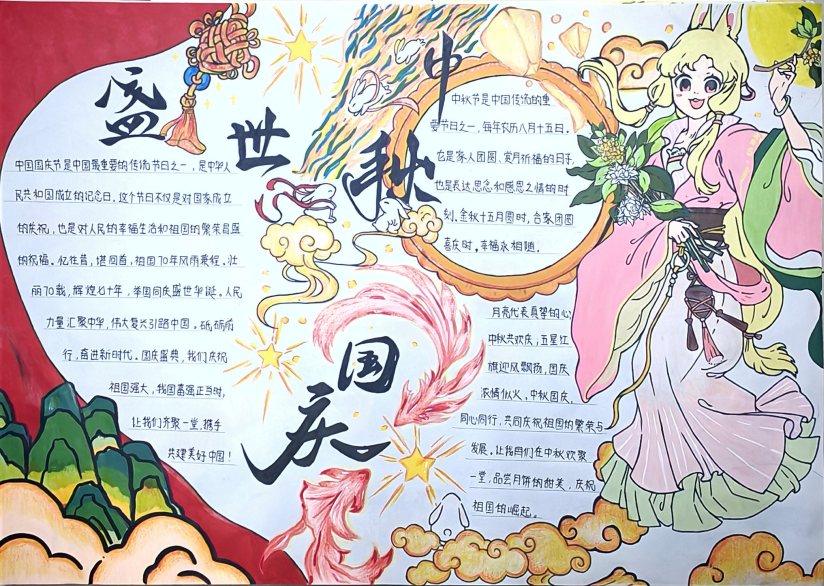 盛世
中秋
国庆
中国国庆节是中国最重要的传统节日之一，是中华人
民共和国成立的记念日，这个节日不仅是对国家成立
的庆祝，也是对人民的幸福生活和祖国的繁荣昌盛
的祝福。忆往昔，堪回首，祖国70年风雨兼程。壮
丽70载，辉煌七十年，举国同庆盛世华诞。人民
力量汇聚中华，伟大复兴引路中国。砥砺前
行，奋进新时代。国庆盛典，我们庆祝
祖国强大，我国富强正当时，
让我们齐聚一堂，携手
共建美好中国！
中秋节是中国传统的重
要节日之一，每年农历八月十五日。
它是家人团圆、赏月祈福的日子，
也是表达思念和感恩之情的时
刻。金秋十五月圆时，合家团圆
喜庆时。幸福永相随。
月亮代表真挚的心
中秋共欢庆，五星红
旗迎风飘扬，国庆
浓情似火。中秋国庆，
同心同行，共同庆祝祖国的繁荣与
发展。让我们在中秋欢聚
一堂，品尝月饼的甜美，庆祝
祖国的崛起。